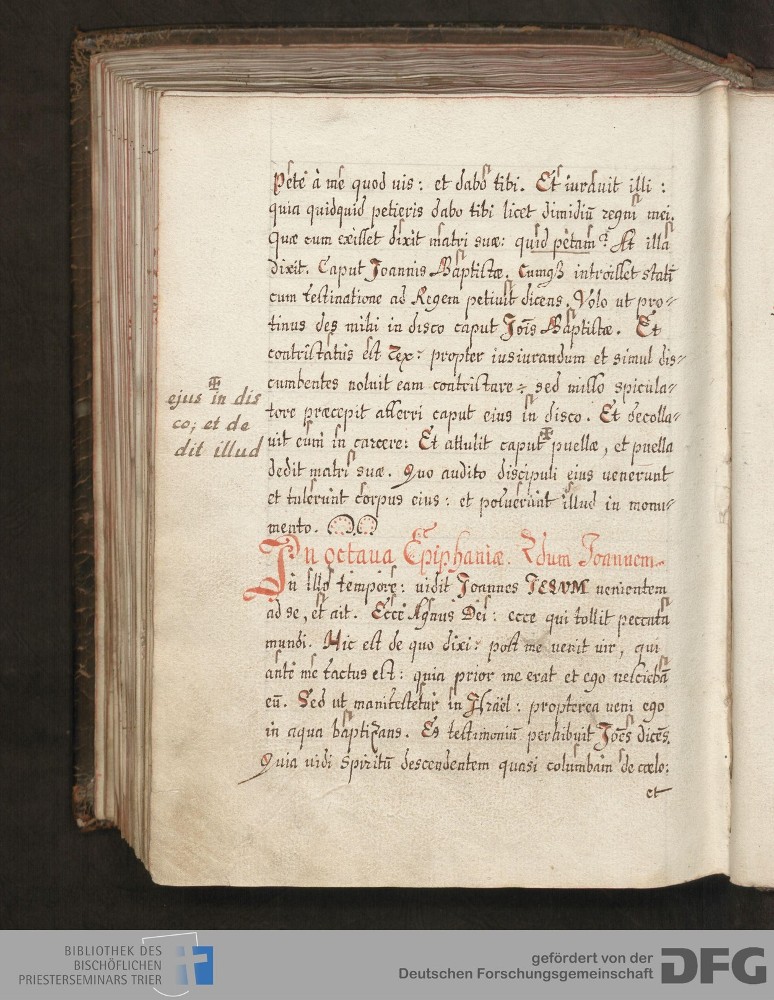 Pete à me quod uis: et dabo tibi. Et iurauit illi:
quia quidquid petieris dabo tibi licet dimidiū regni mei.
Quæ cum exisset dixit matri suæ: quid petam? At illa
dixit. Caput Joannis Baptistæ. Cumqȝ introisset statī
cum festinatione ad Regem petiuit dicens. Volo ut pro-
tinus des mihi in disco caput Joīs Baptistæ. Et
contristatus est rex: propter iusiurandum et simul dis-
cumbentes noluit eam contristare: sed misso spicula-
tore præcepit afferri caput eius in disco. Et decolla-
uit eum in carcere: Et attulit caput ✠ puellæ, et puella
dedit matri suæ. Quo audito discipuli eius uenerunt
et tulerunt corpus eius: et posuerunt illud in monu-
mento.
✠
ejus in dis
co; et de
dit illud
In octaua Epiphaniæ. Zdum Joannem.
In illo tempore: uidit Joannes JESVM uenientem
ad se, et ait. Ecce Agnus Dei: ecce qui tollit peccata
mundi. Hic est de quo dixi: post me uenit uir, qui
ante me factus est: quia prior me erat et ego nesciebā
eū. Sed ut manifestetur in Israël: propterea ueni ego
in aqua baptizans. Et testimoniū perhibuit Joēs dicēs.
Quia uidi spiritū descendentem quasi columbam de cœlo:
et
BIBLIOTHEK DES
BISCHÖFLICHEN
PRIESTERSEMINARS TRIER
gefördert von der
Deutschen Forschungsgemeinschaft
DFG